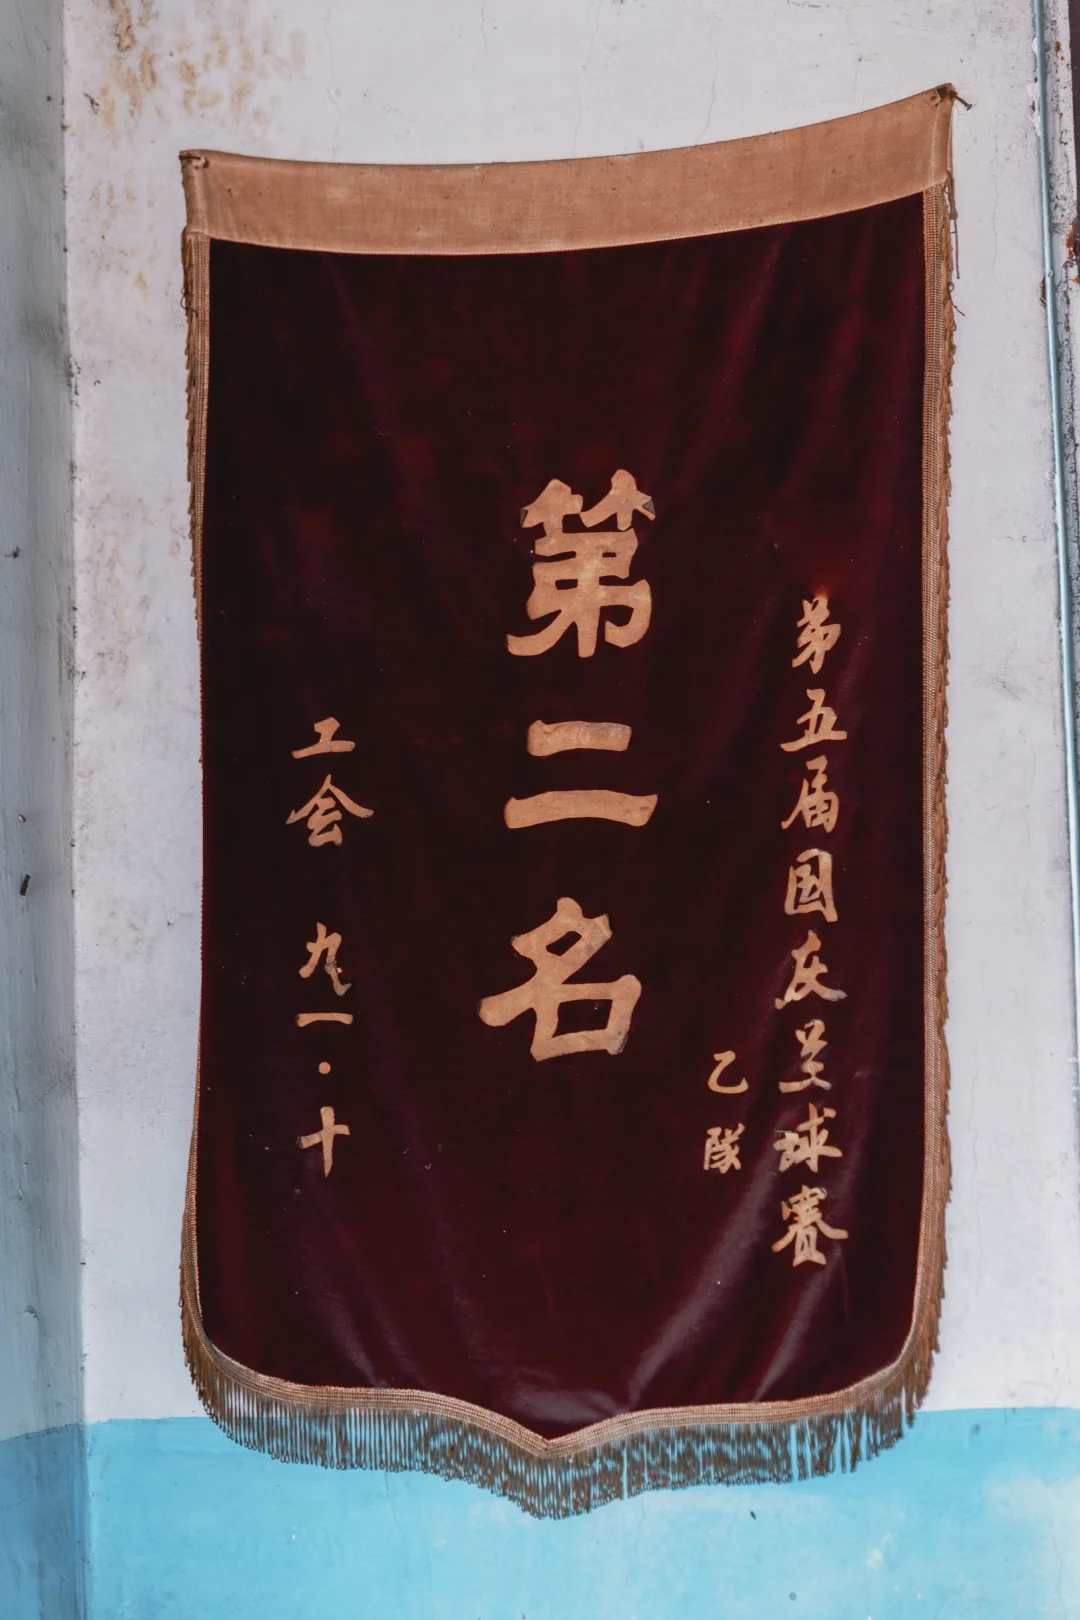 第五届国庆兰球赛
乙隊
第二名
工会 九一·十